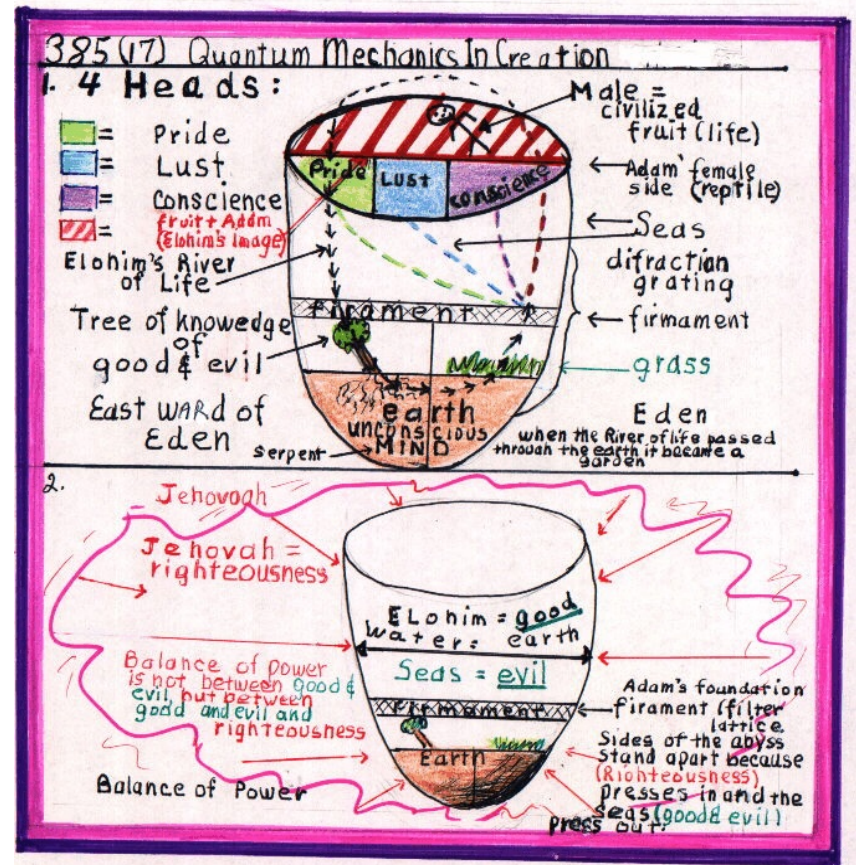 385(17) Quantum Mechanics In Creation
1. 4 Heads:
= Pride
= Lust
= Conscience
= fruit + Adam
(Elohim's Image)
Elohim's River
of Life
Tree of knowedge
of
good & evil
East WARD of
Eden
Pride
LUST
conscience
firament
earth
UNCONSCIOUS
MIND
serpent
Male =
civilized
fruit (life)
Adam' female
side (reptile)
Seas
difraction
grating
firmament
grass
Eden
when the River of life passed
through the earth it became a
garden
2.
Jehovoah
Jehovah =
righteousness
Balance of power
is not between good &
evil, but between
good and evil and
righteousness
Balance of Power
ELohim = good
Water: earth
Seas = evil
firmament
Earth
Adam's foundation
firament (filter
lattice.
Sides of the abyss
stand apart because
(Righteousness)
presses in and the
seas (good & evil)
press out.